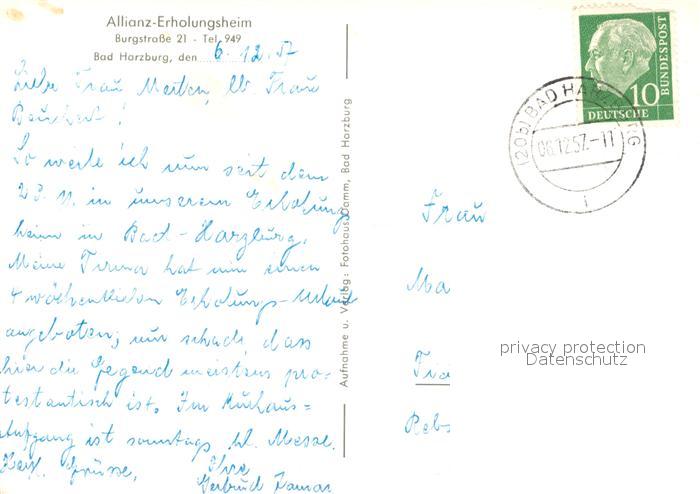 Allianz-Erholungsheim
Burgstraße 21 - Tel. 949
Bad Harzburg, den 6. 12. 57
Liebe Frau Merten, lb. Frau
So weile ich nun seit dem
23. 11. in unserem Erholungs
heim in Bad-Harzburg.
Meine Firma hat mir einen
4 wöchentlichen Erholungs-Urlaub
angeboten; nur schade dass
hier die Gegend meistens pro-
testantisch ist. Im Kurhaus-
Aufgang ist sonntags hl. Messe.
Herzl. Grüsse, Ihre
Gertrud
Aufnahme u. Verlag: Fotohaus Damm, Bad Harzburg
DEUTSCHE
BUNDESPOST
10
(20b) BAD HARZBURG
06.12.57.-11
i
Frau
Ma
Fra
Rebs
privacy protection
Datenschutz